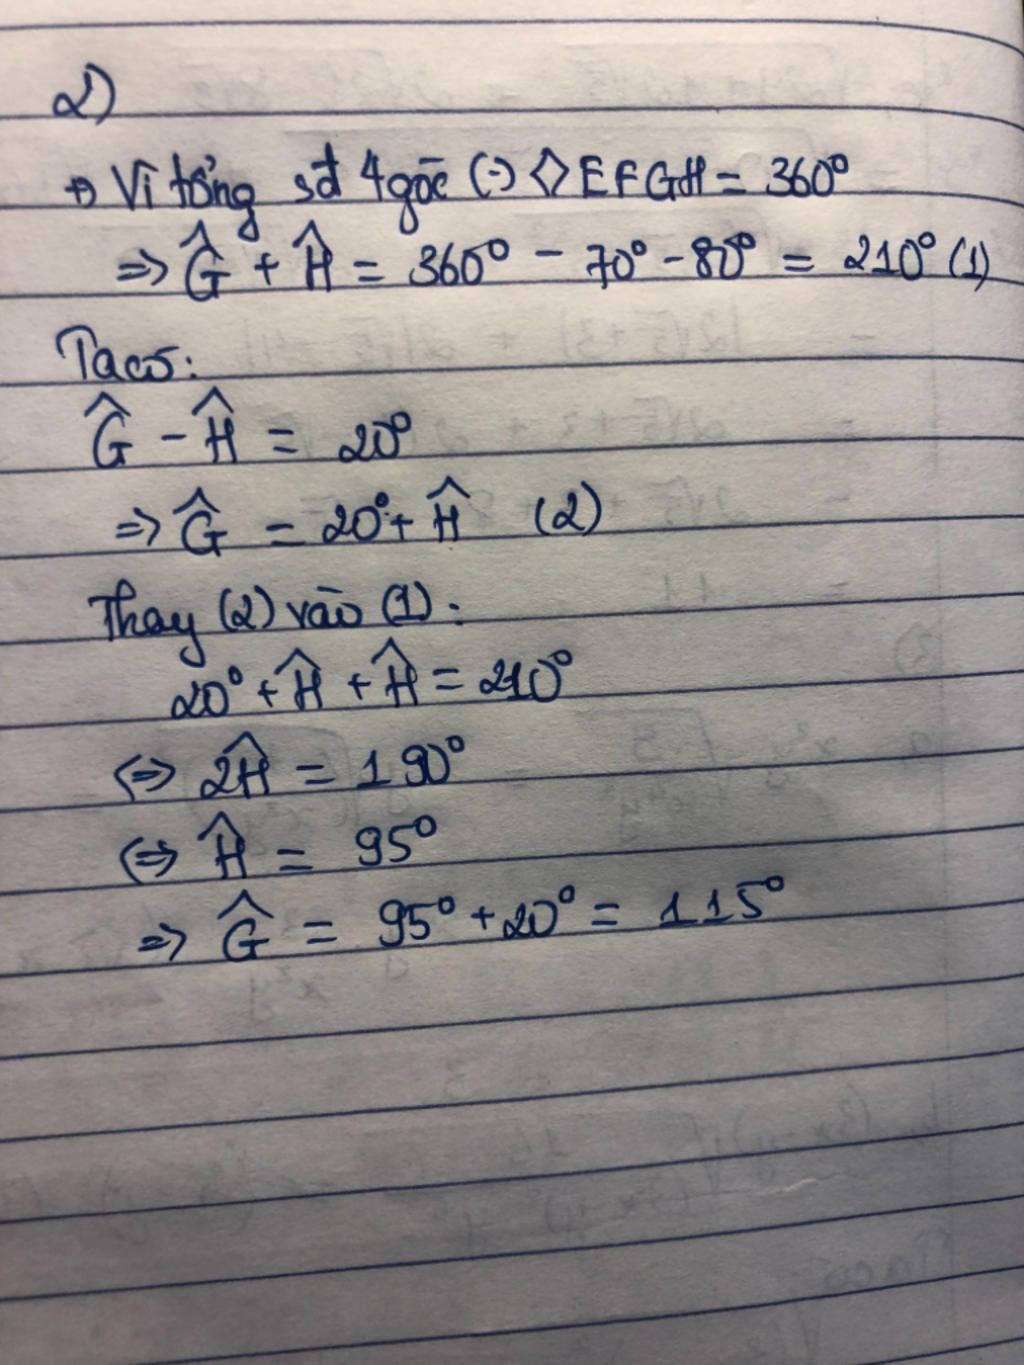 2)
+) Vì tổng sđ 4 góc (-) ◇ EFGH = 360°
=> Ĝ + Ĥ = 360° - 70° - 80° = 210° (1)
Ta có:
Ĝ - Ĥ = 20°
=> Ĝ = 20° + Ĥ (2)
Thay (2) vào (1):
20° + Ĥ + Ĥ = 210°
<=> 2Ĥ = 190°
<=> Ĥ = 95°
=> Ĝ = 95° + 20° = 115°